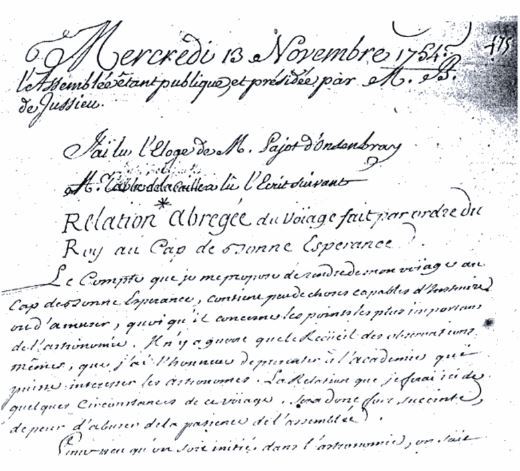 Mercredi 13 Novembre 1754. 475
l'Assemblée étant publique, et présidée par M. B.
de Jussieu.
J'ai lu l'Eloge de M. Pajot d'Onsenbray
M. l'abbé de la Caille a lu l'Ecrit suivant
Relation abregée du voiage fait par ordre du
Roy au Cap de Bonne Esperance
Le Compte que je me propose de rendre de mon voiage au
Cap de Bonne Esperance, contient peu de choses capables d'Instruire
ou d'amuser, quoiqu'il concerne les points les plus importans
de l'astronomie. Il n'y a guere que le Recüeil des observations
mêmes, que j'ai l'honneur de presenter à l'academie qui
puisse interesser les astronomes. La Relation que je ferai ici de
quelques Circonstances de ce voiage, sera donc fort succinte,
de peur d'abuser de la patience de l'assemblée.
Pour peu qu'on soit initié dans l'astronomie, on sait